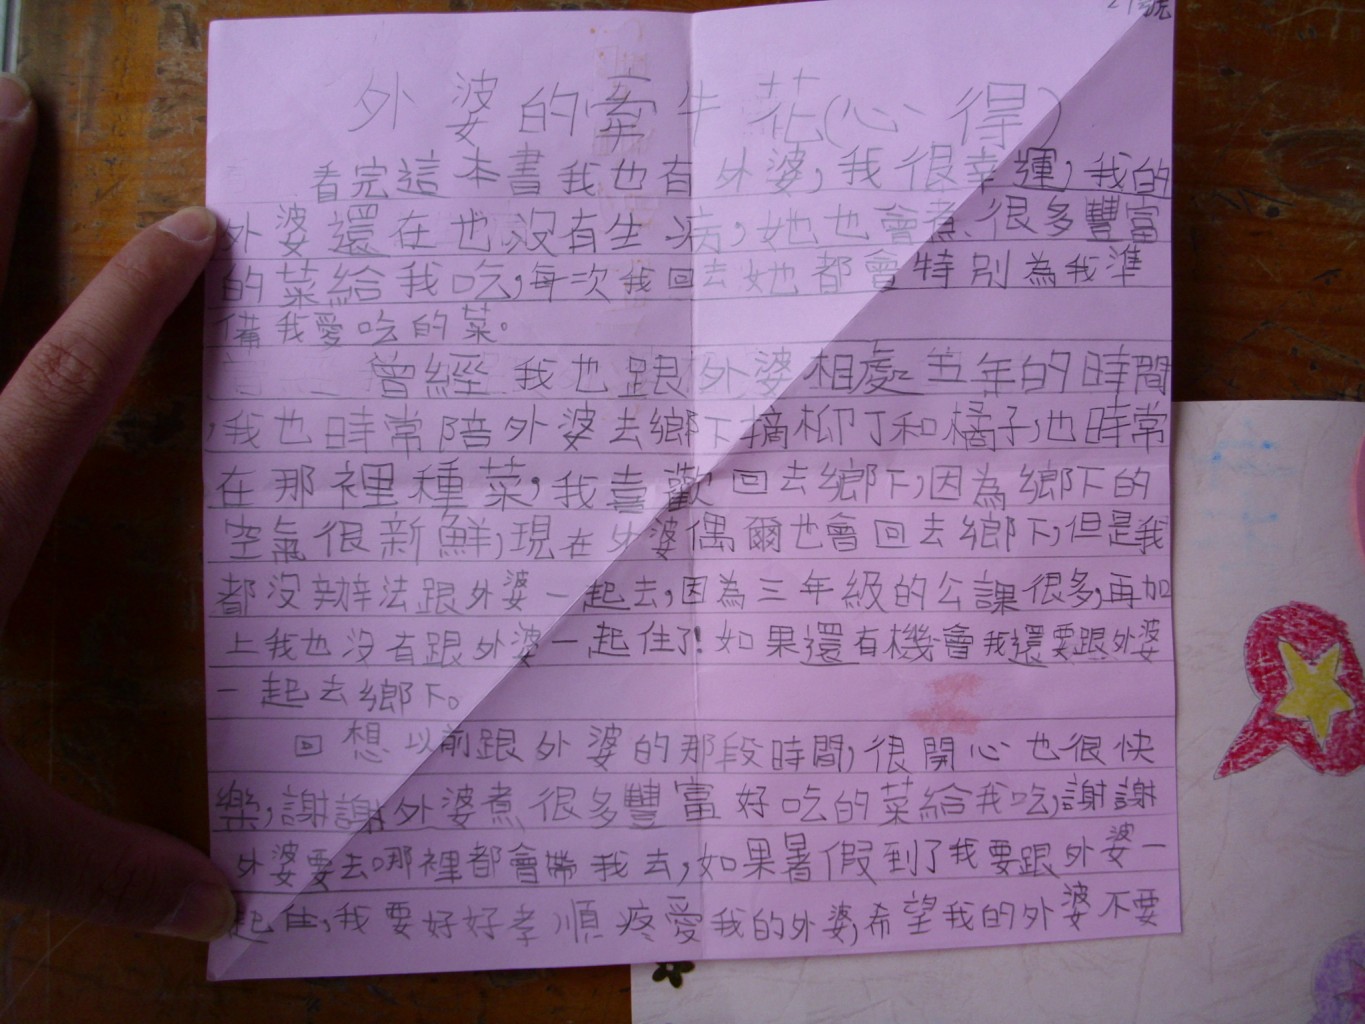 21號
外婆的牽牛花(心得)
看完這本書我也有外婆,我很幸運,我的
外婆還在也沒有生病,她也會煮很多豐富
的菜給我吃,每次我回去她都會特別為我準
備我愛吃的菜。
曾經我也跟外婆相處五年的時間
,我也時常陪外婆去鄉下摘柳丁和橘子,也時常
在那裡種菜,我喜歡回去鄉下,因為鄉下的
空氣很新鮮,現在外婆偶爾也會回去鄉下,但是我
都沒辦法跟外婆一起去,因為三年級的公課很多,再加
上我也沒有跟外婆一起住了!如果還有機會我還要跟外婆
一起去鄉下。
回想以前跟外婆的那段時間,很開心也很快
樂,謝謝外婆煮很多豐富好吃的菜給我吃,謝謝
外婆要去哪裡都會帶我去,如果暑假到了我要跟外婆一
起住,我要好好孝順疼愛我的外婆,希望我的外婆不要